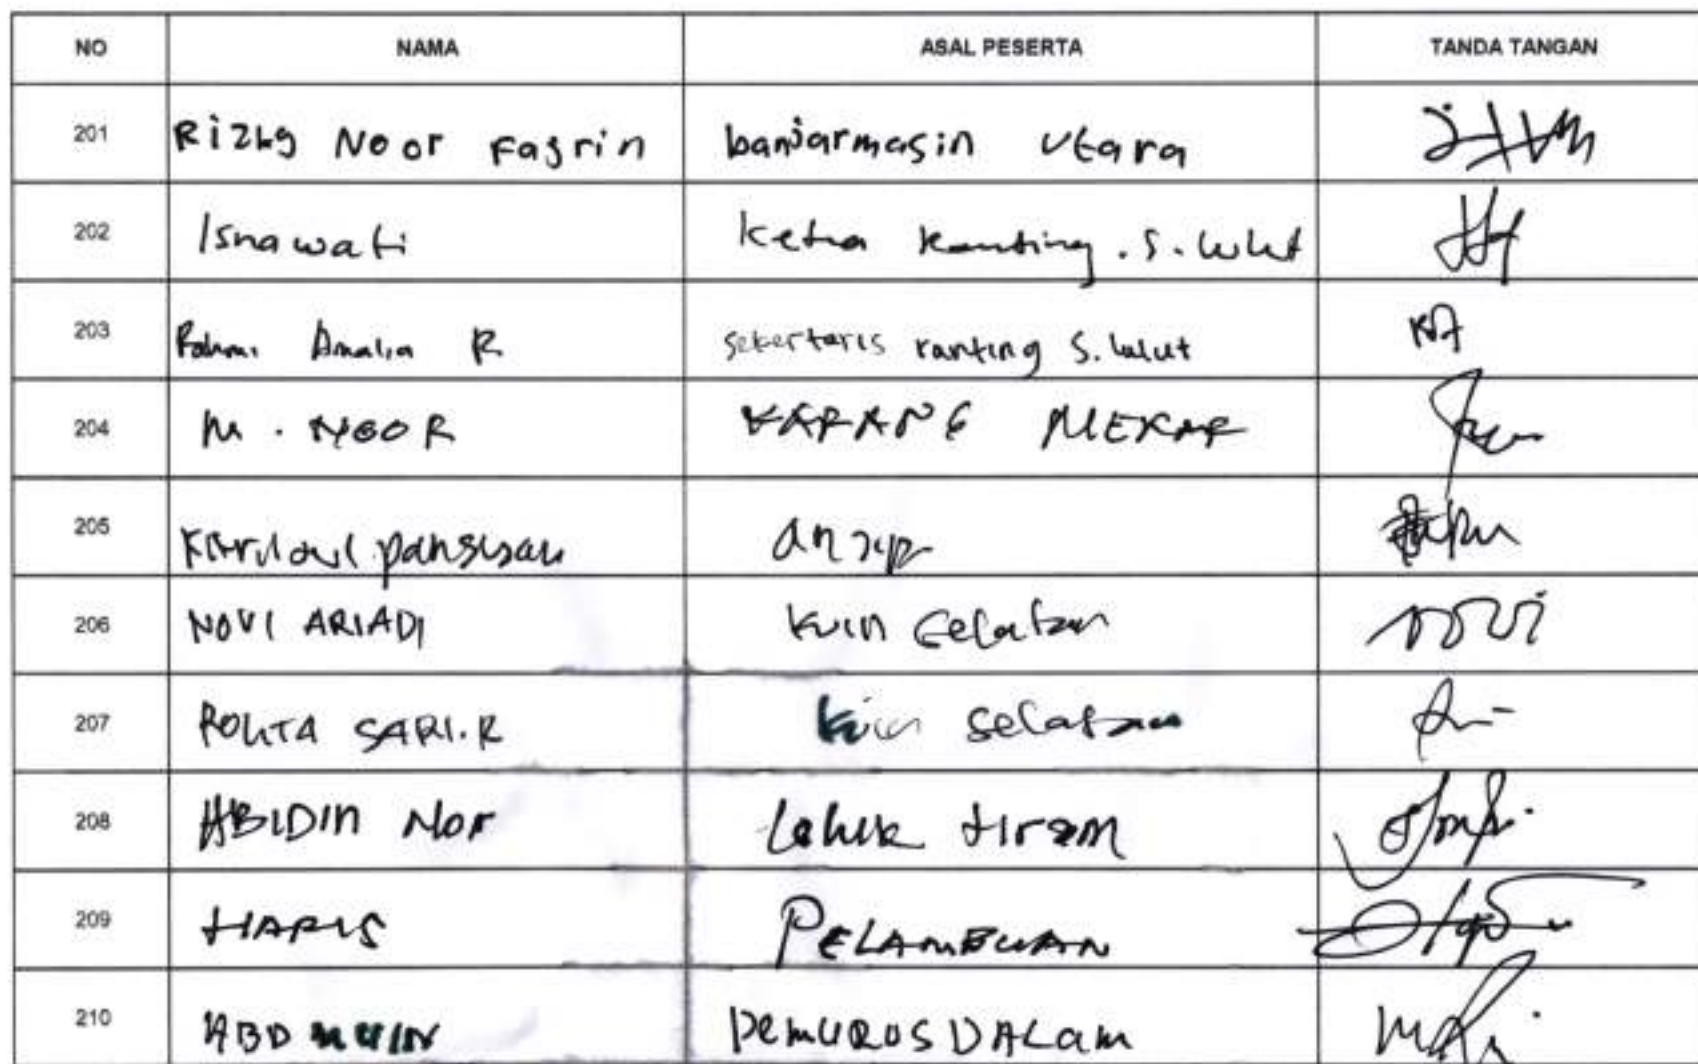 NO NAMA ASAL PESERTA TANDA TANGAN
201 Rizky Noor Fajrin banjarmasin Utara
202 Isnawati Ketua Ranting . S. Lulut
203 Rahmi Amalia R sekertaris ranting S. Lulut
204 M. NOOR KARANG MEKAR
205
206 NOVI ARIADI Kuin Selatan novi
207 ROLITA SARI.R Kuin Selatan
208 ABIDIN Nor tiram
209 HARIS PELAMBUAN
210 ABD MUIN PemuRUS DALam